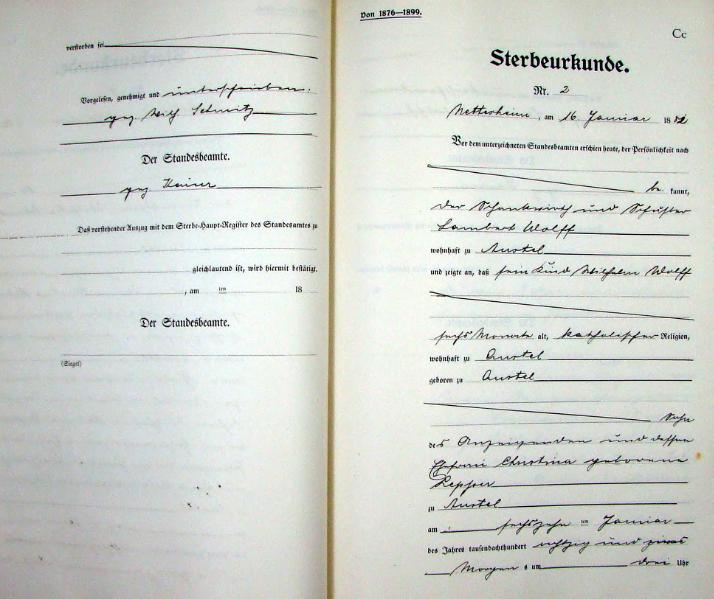 verstorben sei
Vorgelesen, genehmigt und unterschrieben.
gez. Wilh. Schmitz
Der Standesbeamte.
gez
Daß vorstehender Auszug mit dem Sterbe-Haupt-Register des Standesamtes zu
gleichlautend ist, wird hiermit bestätigt.
, am ten 18
Der Standesbeamte.
(Siegel)
Von 1876—1899.
Cc
Sterbeurkunde.
Nr. 2
Nettersheim, am 16. Januar 1882
Vor dem unterzeichneten Standesbeamten erschien heute, der Persönlichkeit nach
be kannt,
der Schenkwirth und Schuster
Lambert Wolff
wohnhaft zu
und zeigte an, daß sein Kind Wilhelm Wolff
sechs Monate alt, katholischer Religion,
wohnhaft zu
geboren zu
Sohn
des Anzeigenden und dessen
Ehefrau Christina geborene
zu
am sechszehn ten Januar
des Jahres tausendachthundert achtzig und zwei
Morgens um drei Uhr